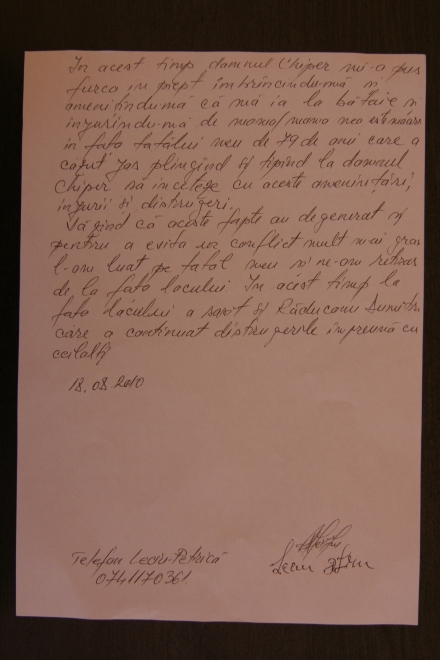 În acest timp damnul Chiper mi-a pus
furca in piept imbrîncindu-mă și
amenițîndu-mă că mă ia la bătaie și
injurîndu-mă de mama/mama mea
în fața tatălui meu de 79 de ani care a
cazut jos plîngînd și țipînd la damnul
Chiper să incetege cu aceste amenințări,
injurii și distrugeri.
Văgînd că aceste fapte au degenerat și
pentru a evita un conflict mult mai grav
l-am luat pe tatăl meu și ne-am retras
de la fața locului. In acest timp la
fața lócului a sosit și Răducanu Dumitru
care a continuat distrugerile împreună cu
ceilalți
18.08.2010
Telefon Lecin-Petrică
0741170361